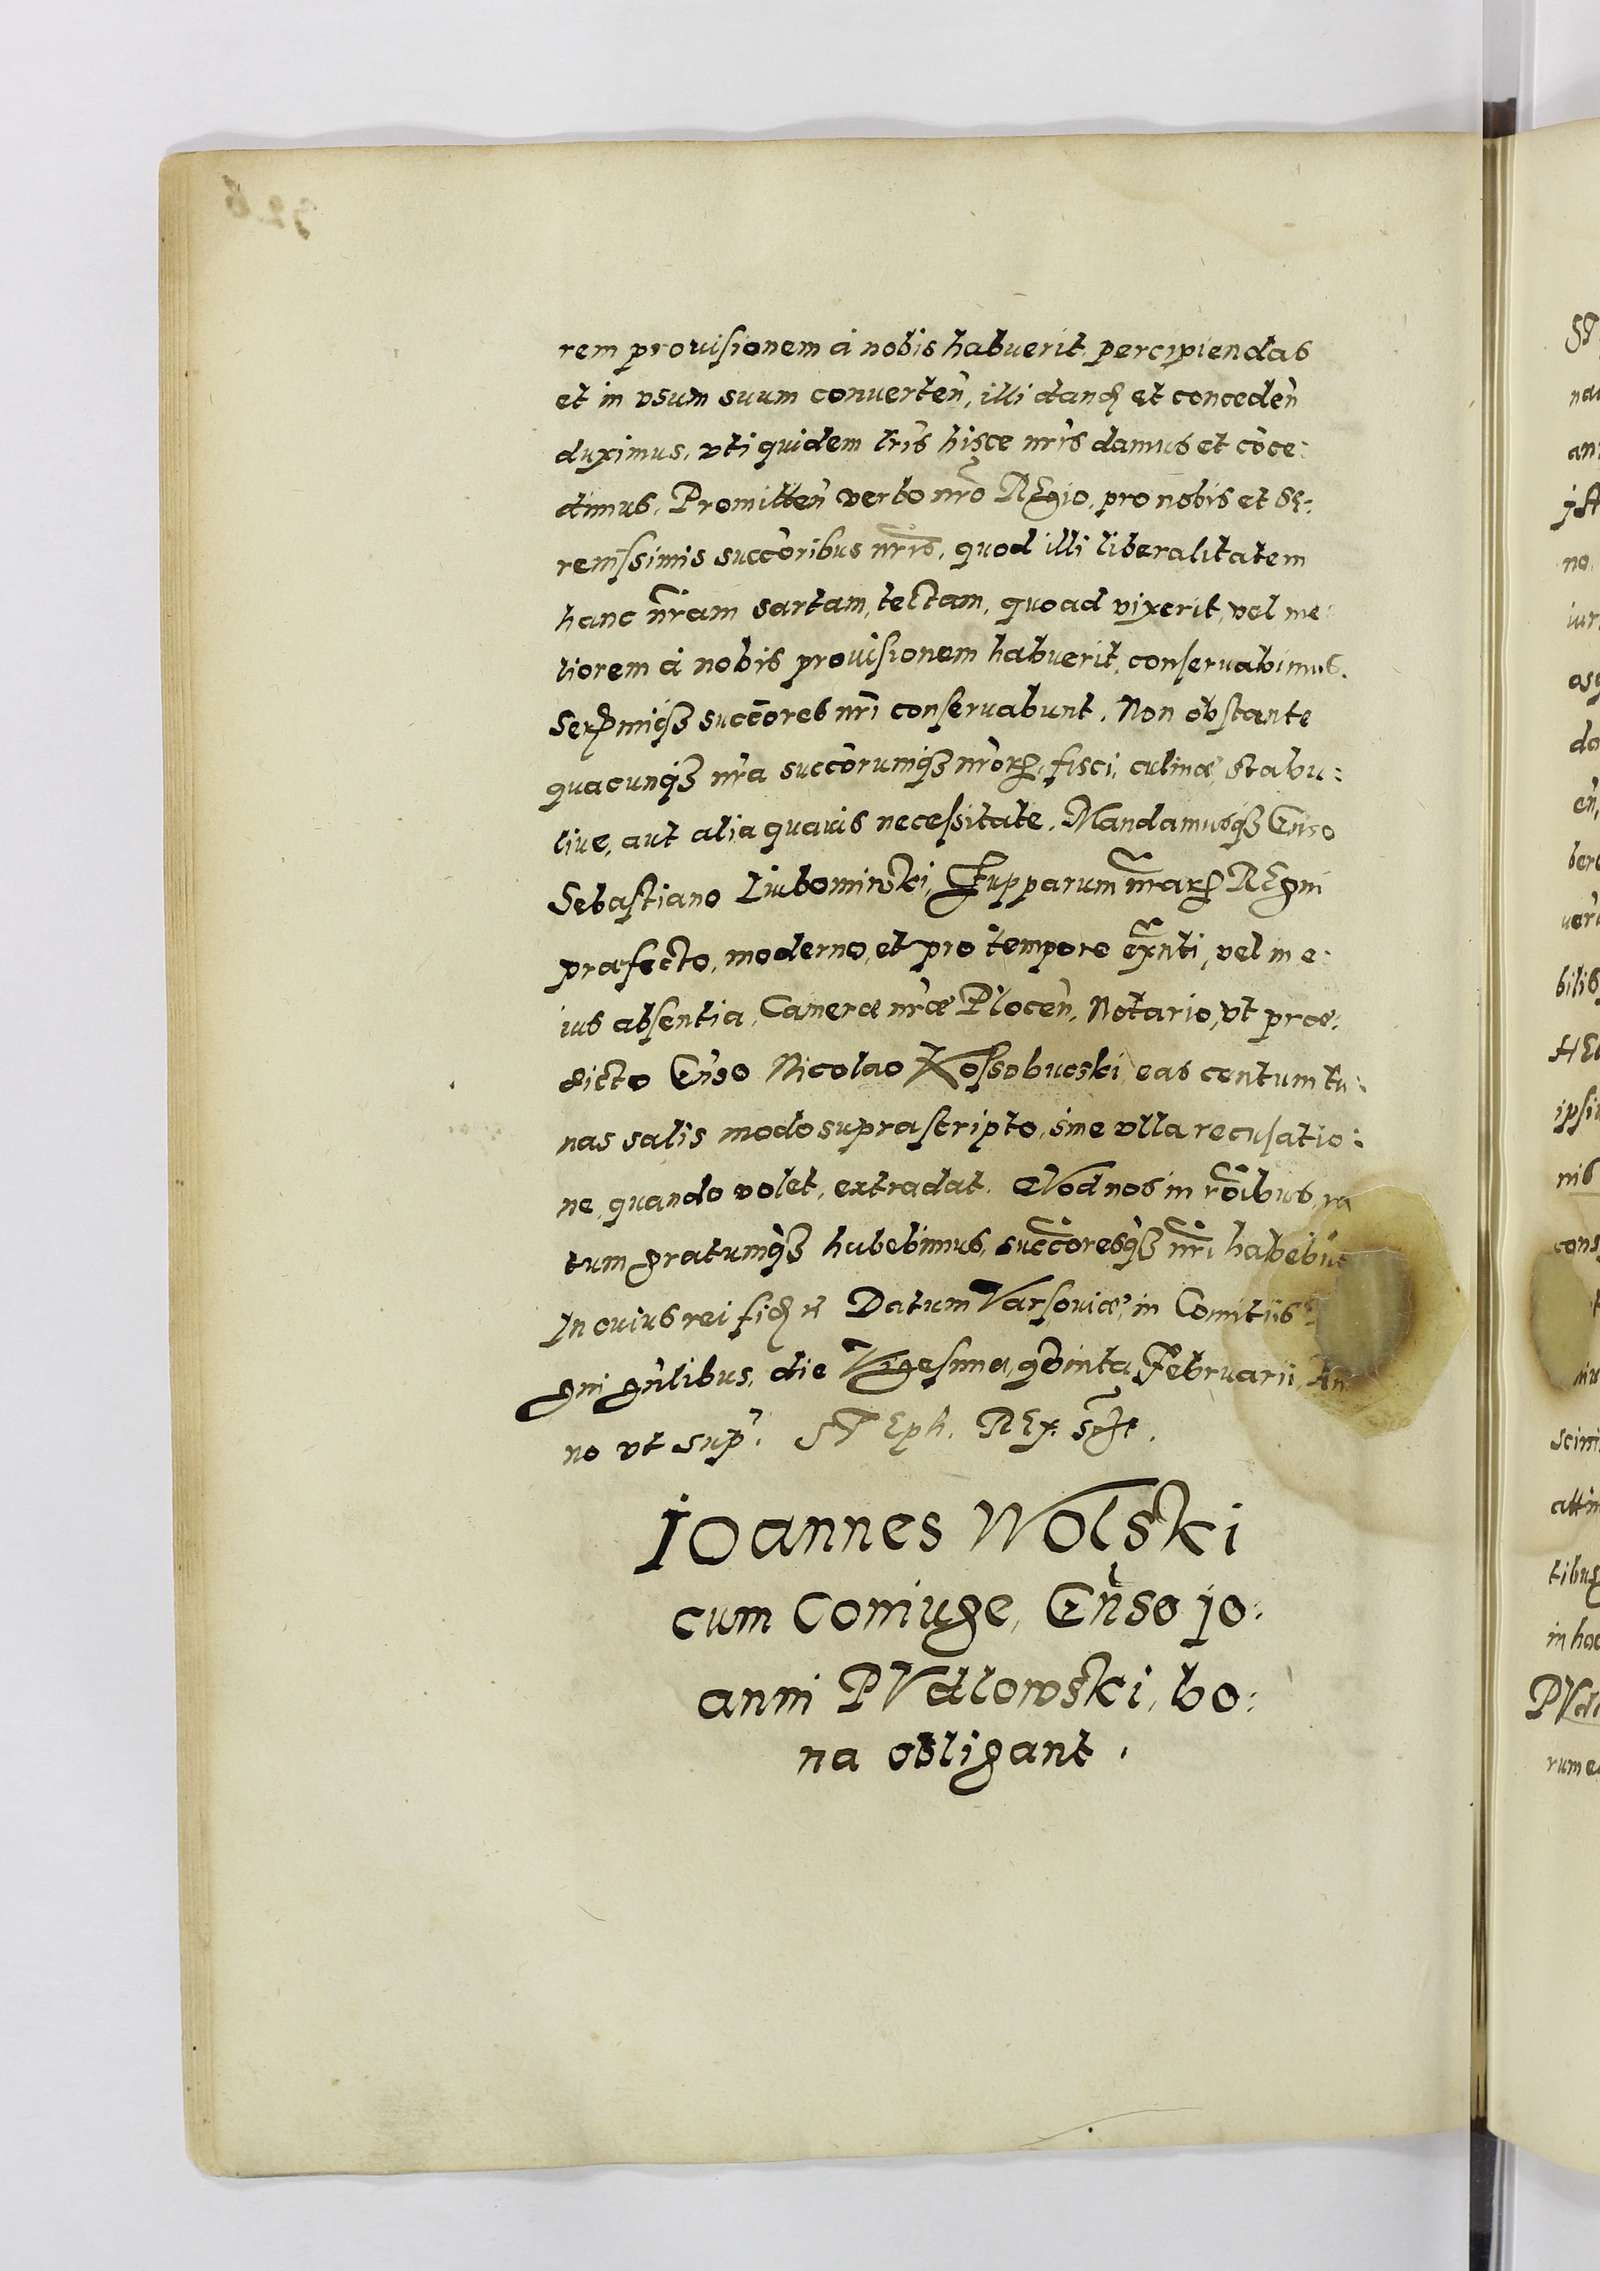 rem provisionem à nobis habuerit, percipiendas
et in vsum suum converteñ, illi dandˢ et concedeñ
duximus, vti quidem lr̃is hisce nr̃is damus et cõce:
dimus. Promitteñ verbo nr̃o REgio, pro nobis et Se:
renissimis succõribus nr̃is, quod illi liberalitatem
hanc nr̃am sartam, tectam, quoad vixerit, vel me:
liorem à nobis provisionem habuerit, conservabimus.
Serẽmiqꝫ succõres nr̃i conservabunt. Non obstante
quacunqꝫ nr̃a succõrumqꝫ nr̃orꝝ, fisci, culinæ, stabu:
live, aut alia quavis necessitate. Mandamusqꝫ Gñso
Sebastiano Liubomirski, Zupparum nr̃arꝝ REgni
præfecto, moderno, et pro tempore exñti, vel in e:
ius absentia, Cameræ nr̃æ Ploceñ, Notario, vt præ:
dicto Gñso Nicolao Kossobucski, eas centum tu:
nas salis modo suprascripto, sine vlla recusatio:
ne, quando volet, extradat. QVod nos in rõibus, ra
tum gratumqꝫ habebimus, succõresqꝫ nr̃i habebũt
In cuius rei fidˢ Datum Varsoviæ, in Comitiis
gni gñlibus, die Vigesima qvinta Februarii, An
no vt sup. STEph. REx. sst.
Ioannes Wolski
cum Coniuge, Gñso Jo:
anni PVdlowski, bo:
na obligant.